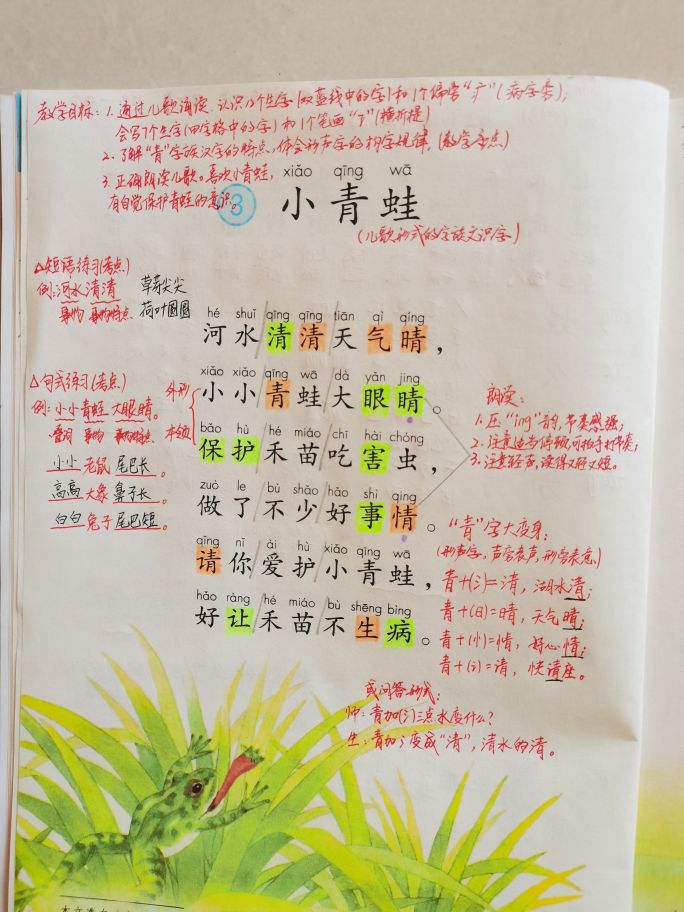 教学目标：1.通过儿歌诵读，认识12个生字(双蓝线中的字)和1个偏旁“疒”(病字旁)；
会写7个生字(田字格中的字)和1个笔画“㇊”(横折提)
2.了解“青”字族汉字的特点，体会形声字的构字规律，(教学重点)
3.正确朗读儿歌。喜欢小青蛙，
有自觉保护青蛙的意识。
xiǎo qīng wā
3 小青蛙
(儿歌形式的字族文识字)
△短语练习(考点)
例：河水清清
事物 事物特点
草芽尖尖
荷叶圆圆
hé shuǐ qīng qīng tiān qì qíng
河水清清天气晴，
△句式练习(考点)
例：小小青蛙大眼睛。
叠词 事物 事物特点
小小老鼠尾巴长。
高高大象鼻子长。
白白兔子尾巴短。
外形
本领
xiǎo xiǎo qīng wā dà yǎn jing
小小青蛙大眼睛。
bǎo hù hé miáo chī hài chóng
保护禾苗吃害虫，
zuò le bù shǎo hǎo shì qing
做了不少好事情。
qǐng nǐ ài hù xiǎo qīng wā
请你爱护小青蛙，
hǎo ràng hé miáo bù shēng bìng
好让禾苗不生病。
朗读：
1.压“ing”韵，节奏感强；
2.注意适当停顿，可拍手打节奏；
3.注意轻声，读得又轻又短。
“青”字大变身：
(形声字，声旁表声，形旁表意)
青+(氵)=清，湖水清；
青+(日)=晴，天气晴；
青+(忄)=情，好心情；
青+(讠)=请，快请座。
或问答形式：
师：青加(氵)三点水变什么？
生：青加氵变成“清”，清水的清。